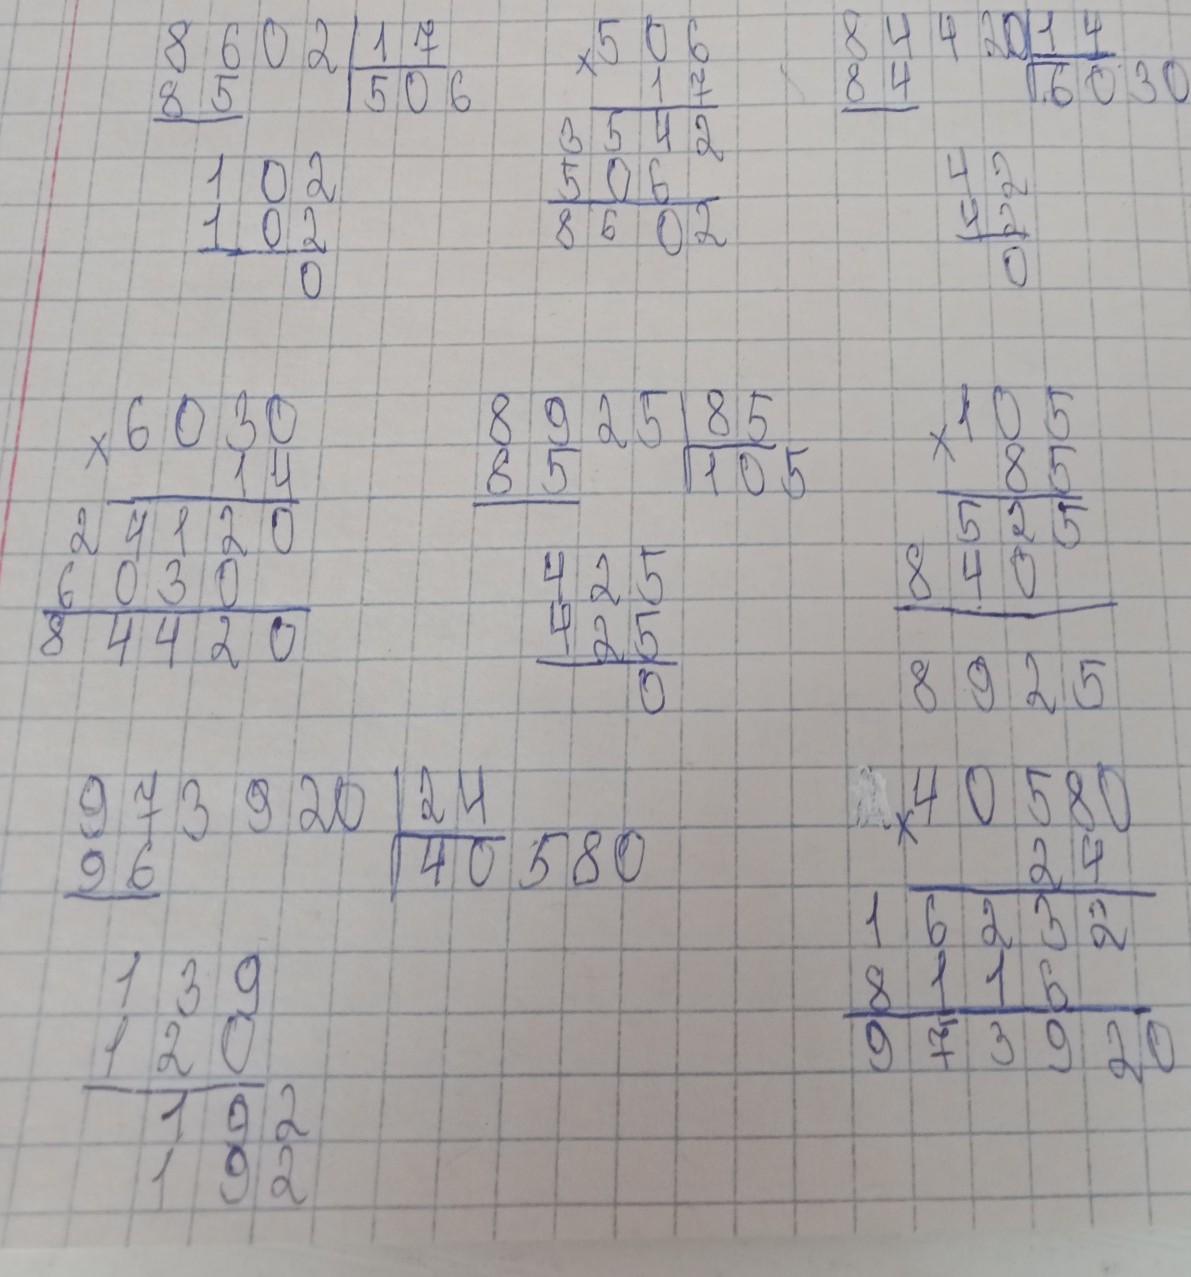 8602 | 17
85 | 506
102
102
0
× 506
17
3542
506
8602
84420 | 14
84 | 6030
42
42
0
× 6030
14
24120
6030
84420
8925 | 85
85 | 105
425
425
0
× 105
85
525
840
8925
973920 | 24
96 | 40580
139
120
192
192
× 40580
24
16232
8116
973920